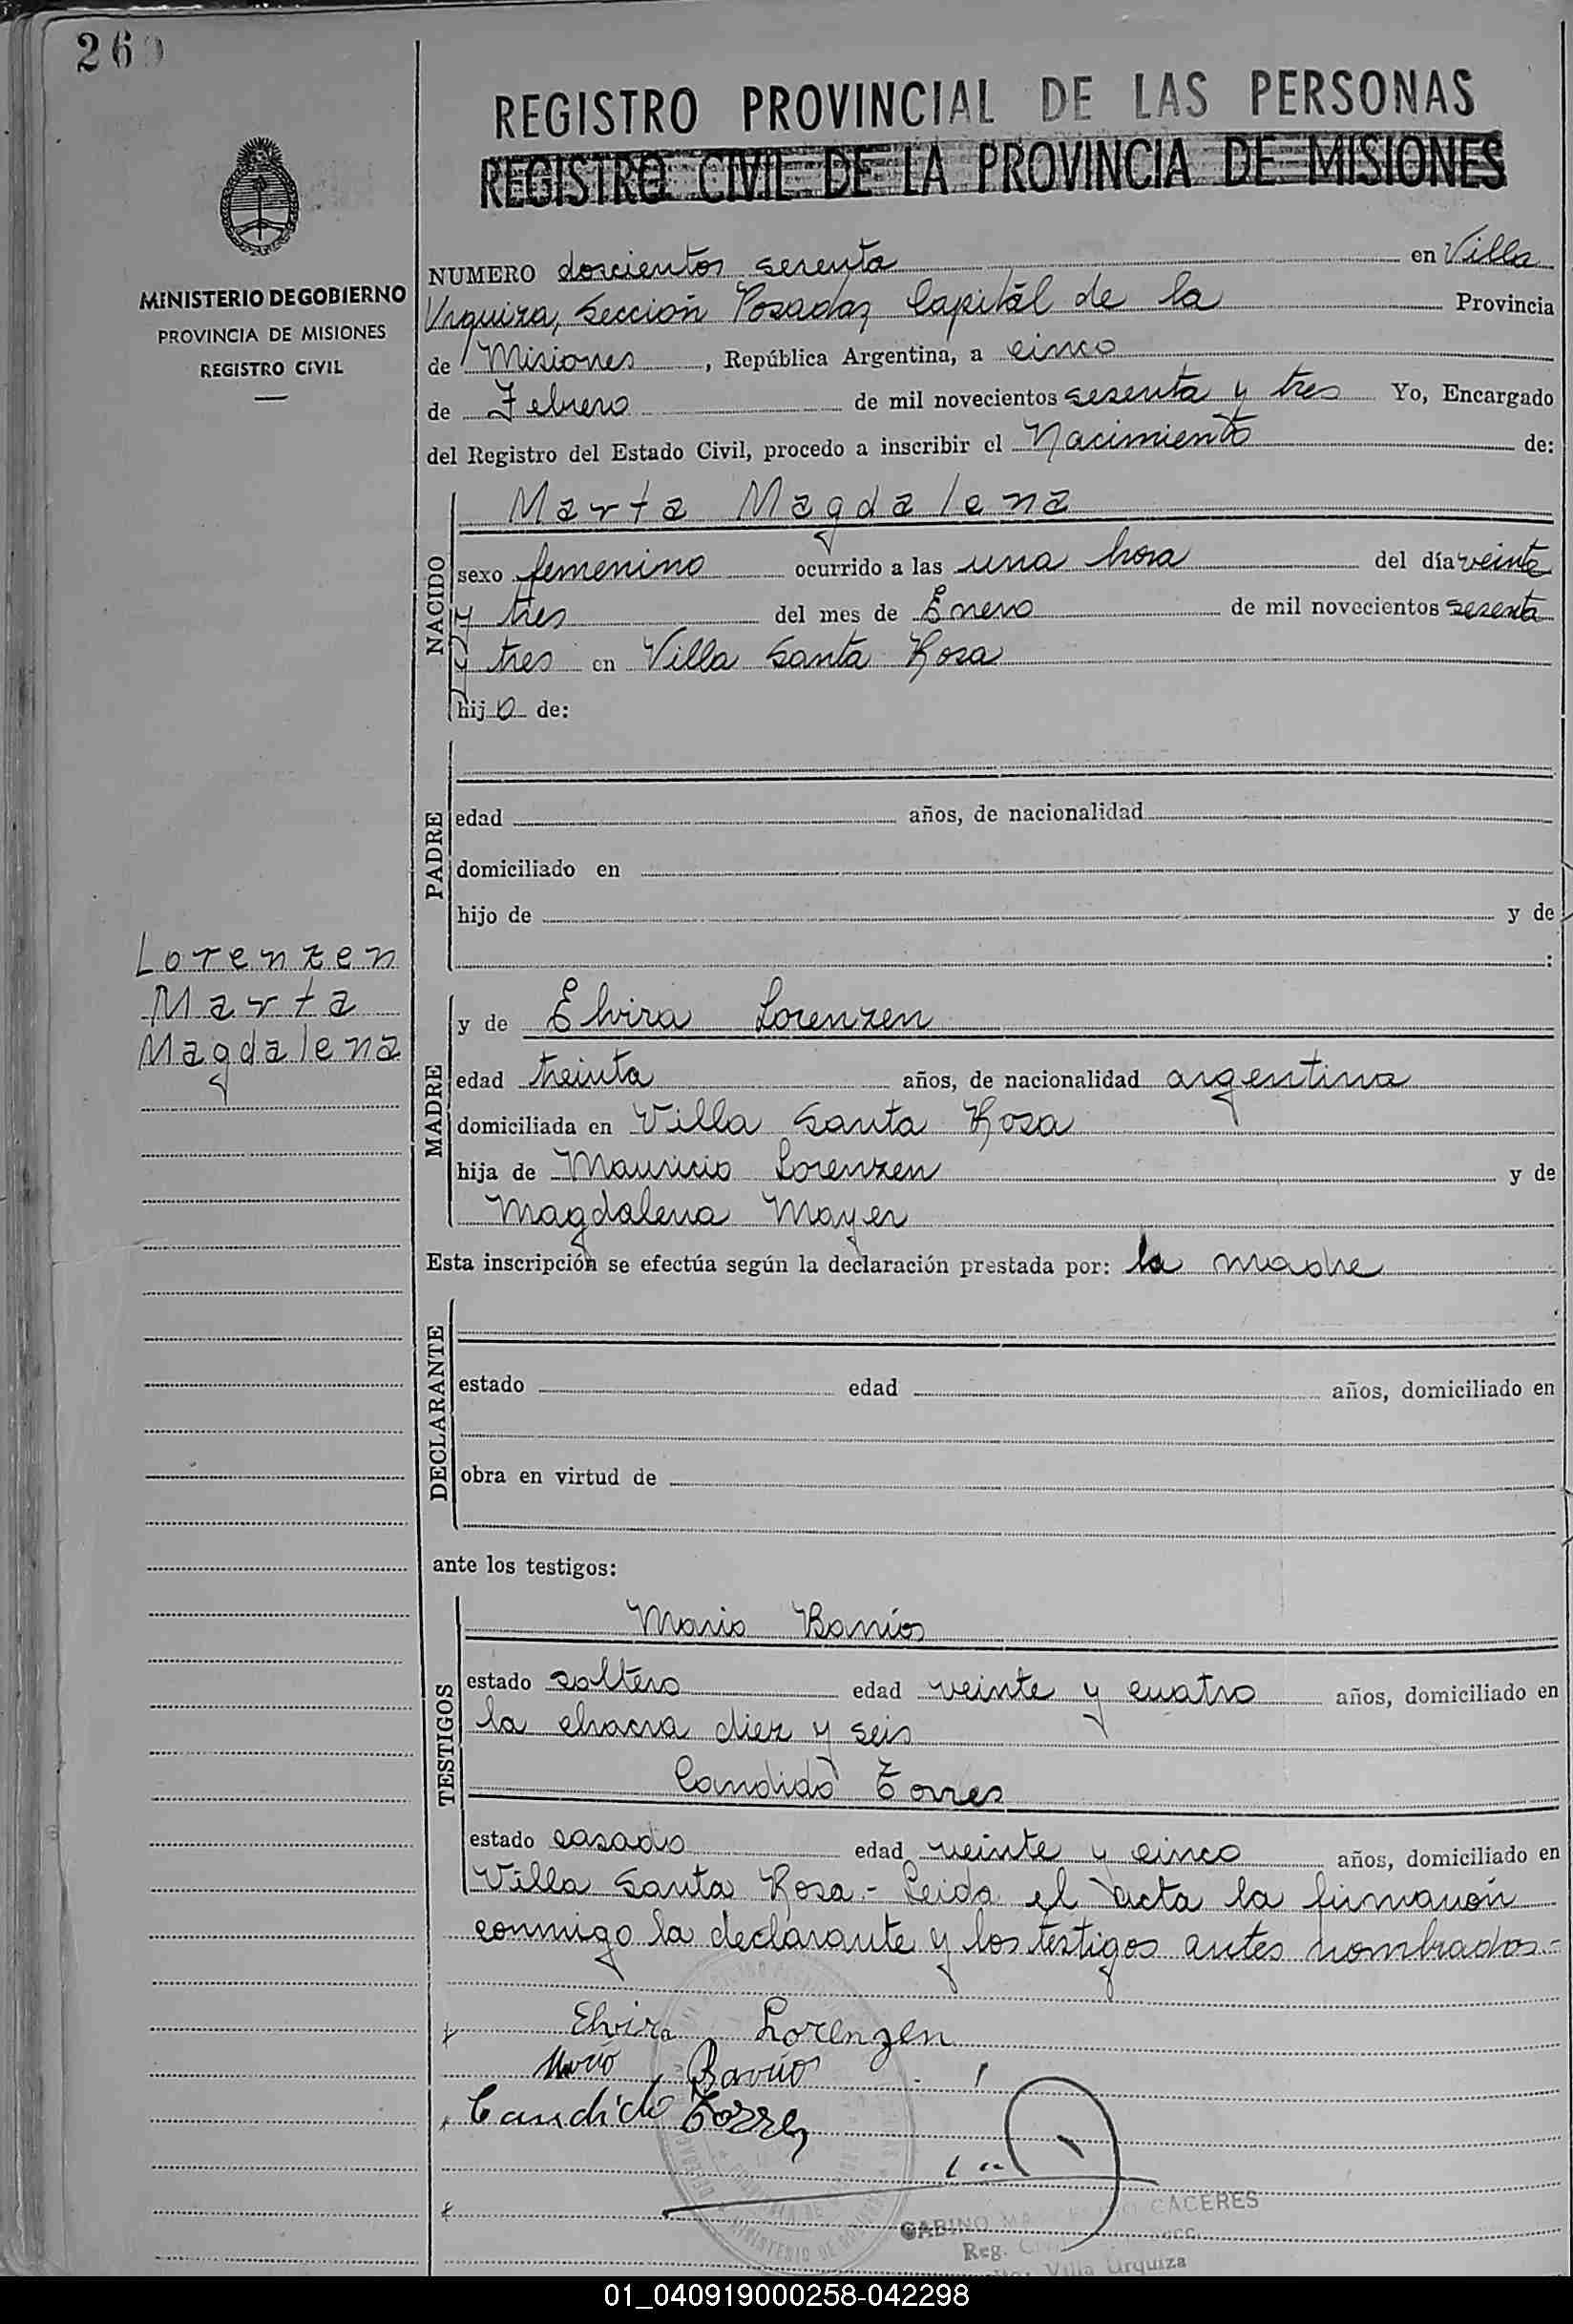 260
REGISTRO PROVINCIAL DE LAS PERSONAS
REGISTRO CIVIL DE LA PROVINCIA DE MISIONES
MINISTERIO DE GOBIERNO
PROVINCIA DE MISIONES
REGISTRO CIVIL
NUMERO doscientos sesenta en Villa
Urquiza, Sección Posadas, Capital de la Provincia
de Misiones, República Argentina, a cinco
de Febrero de mil novecientos sesenta y tres Yo, Encargado
del Registro del Estado Civil, procedo a inscribir el Nacimiento de:
NACIDO
Marta Magdalena
sexo femenino ocurrido a las una hora del día veinte
y tres del mes de Enero de mil novecientos sesenta
y tres en Villa Santa Rosa
hija de:
PADRE
edad años, de nacionalidad
domiciliado en
hijo de y de
:
Lorenzen
Marta
Magdalena
MADRE
y de Elvira Lorenzen
edad treinta años, de nacionalidad argentina
domiciliada en Villa Santa Rosa
hija de Mauricio Lorenzen y de
Magdalena Mayer
Esta inscripción se efectúa según la declaración prestada por: la madre
DECLARANTE
estado edad años, domiciliado en
obra en virtud de
ante los testigos:
TESTIGOS
Mario Barrios
estado soltero edad veinte y cuatro años, domiciliado en
la chacra diez y seis
Candido Torres
estado casado edad veinte y cinco años, domiciliado en
Villa Santa Rosa.- Leida el acta la firmarón
conmigo la declarante y los testigos antes nombrados.=
Elvira Lorenzen
Mario Barrios
Candido Torres
GABINO CACERES
Reg.
Villa Urquiza
01_040919000258-042298